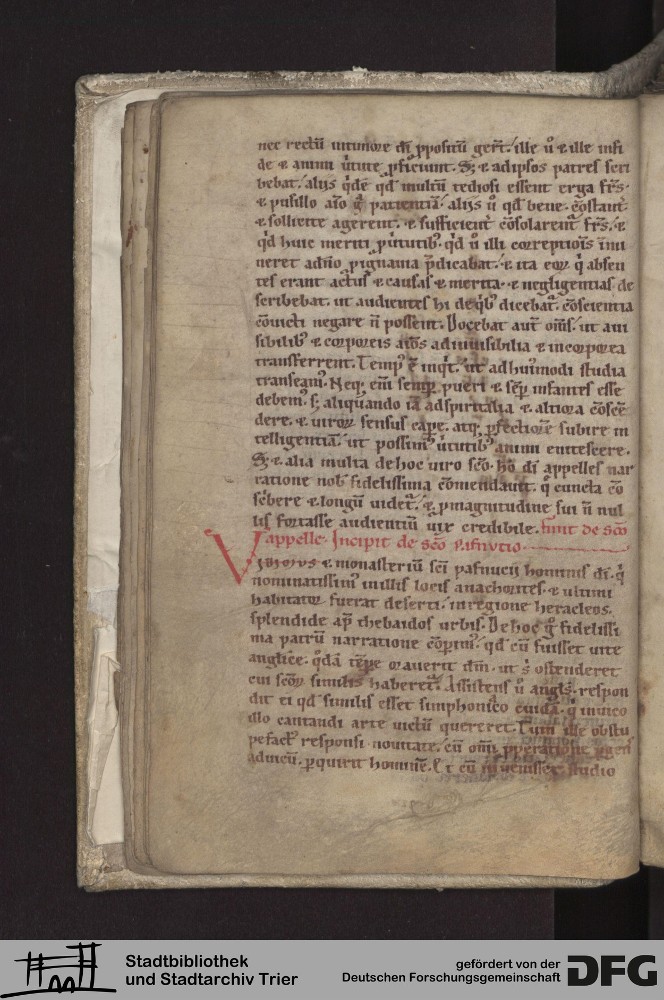 nec rectū uitiuiore di ꝓpositū gerit. ille ů & ille infi
de & animi ůtute ꝓficiunt. S; & adipsos patres scri
bebat. alijs qdē qd multū tediosi essent erga frs.
& pusillo aīo ꝗ patientiā. alijs ů qd bene. cōstant
& sollicite agerent. & sufficient cōsolarent frs. &
qd huic meriti ꝓůtutib; qd ů illi correptiois īmi
neret adño ꝓignauia p̄dicabat. & ita eoꝝ q absen
tes erant actus & causas & merita. & negligentias de
scribebat. ut audientes hi deqb; dicebat. cōscientia
cōuicti negare ñ possent. Docebat aut oms. ut aui
sibilib; & corporeis aībs adinuisibilia & incorporea
transferrent. Temp' ē inqt. ut adhui'modi studia
transeam'. Neq; eni semp pueri & sēp infantes esse
debem'. s; aliquando iā adspiritalia & altiora cōscē
dere. & uiroꝝ sensus cape. atq; ꝑfectiorē subire in
telligentiā. ut possim' ůtutib; animi enitescere.
S; & alia multa dehoc uiro scō. hō di appelles nar
ratione nob' fidelissima cōmendauit. q cuncta cō
scribere & longū uidet. & ꝓmagnitudine sui ñ nul
lis fortasse audientiū uix credibile. finit de scō
appelle. Incipit de scō Pafnutio.
Vidimus & monasteriū sci pafnucij hominis di. q
nominatissim' in illis locis anachorites. & ultimi
habitator fuerat deserti. in regione heracleos.
splendide ap thebaidos urbis. Dehoc ꝗ fidelissi
ma patrū narratione cōperim'. qd cū fuisset uite
anglice. qdā tēpe orauerit dm. ut s ostenderet
cui scoꝝ similis haberet. Assistens ů angls. respon
dit ei qd similis esset simphonico cuidā. q inuico
illo cantandi arte uictū quereret. Tum ille obstu
pefact' responsi nouitate. cū omi ꝓperatione ꝑgens
aduicū. ꝑquirit hominē. Et cū inuenisset. studio
Stadtbibliothek
und Stadtarchiv Trier
gefördert von der
Deutschen Forschungsgemeinschaft
DFG